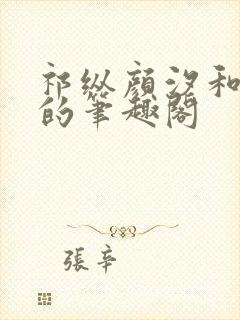 祁纵顔汐和
的筆趣閣
張辛